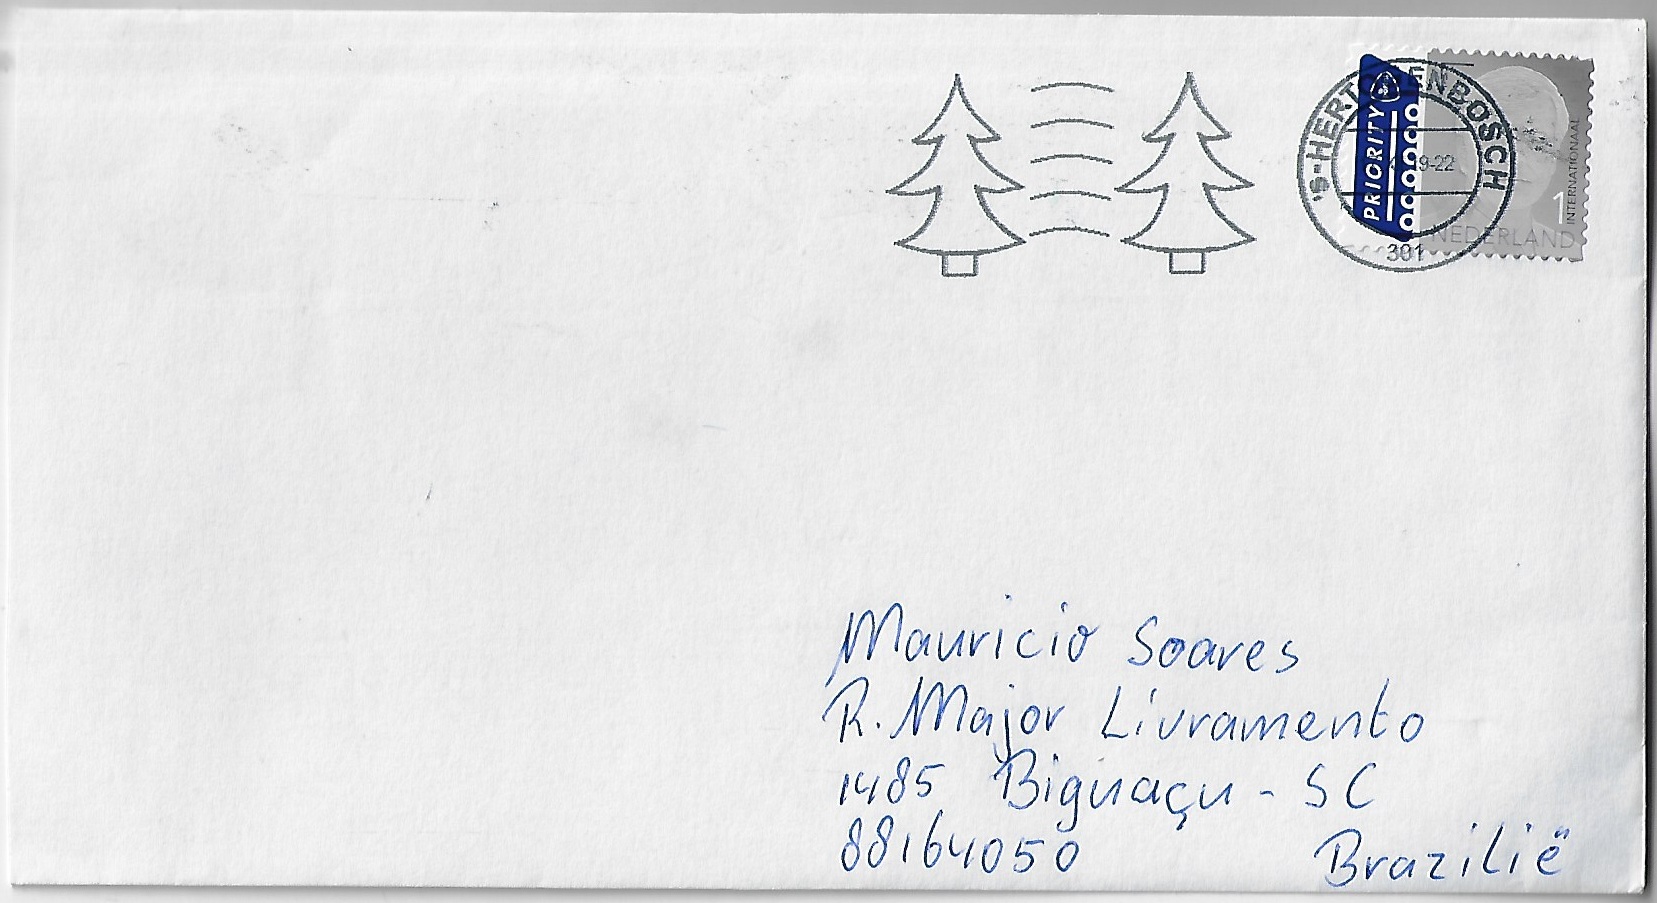 'S-HERTOGENBOSCH
PRIORITY
19-22
301
1
INTERNATIONAAL
NEDERLAND
Mauricio Soares
R. Major Livramento
1485 Biguaçu - SC
88164050 Brazilië